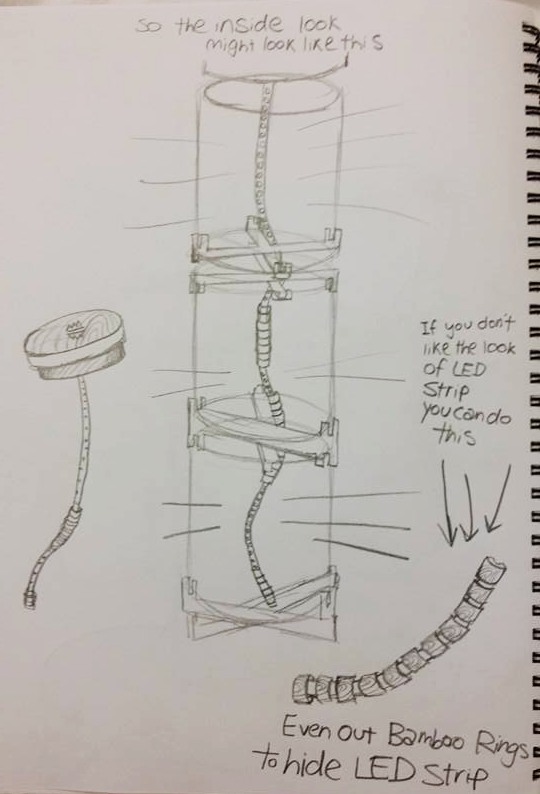 so the inside look
might look like this
If you don't
like the look
of LED
Strip
you can do
this
Even out Bamboo Rings
to hide LED Strip